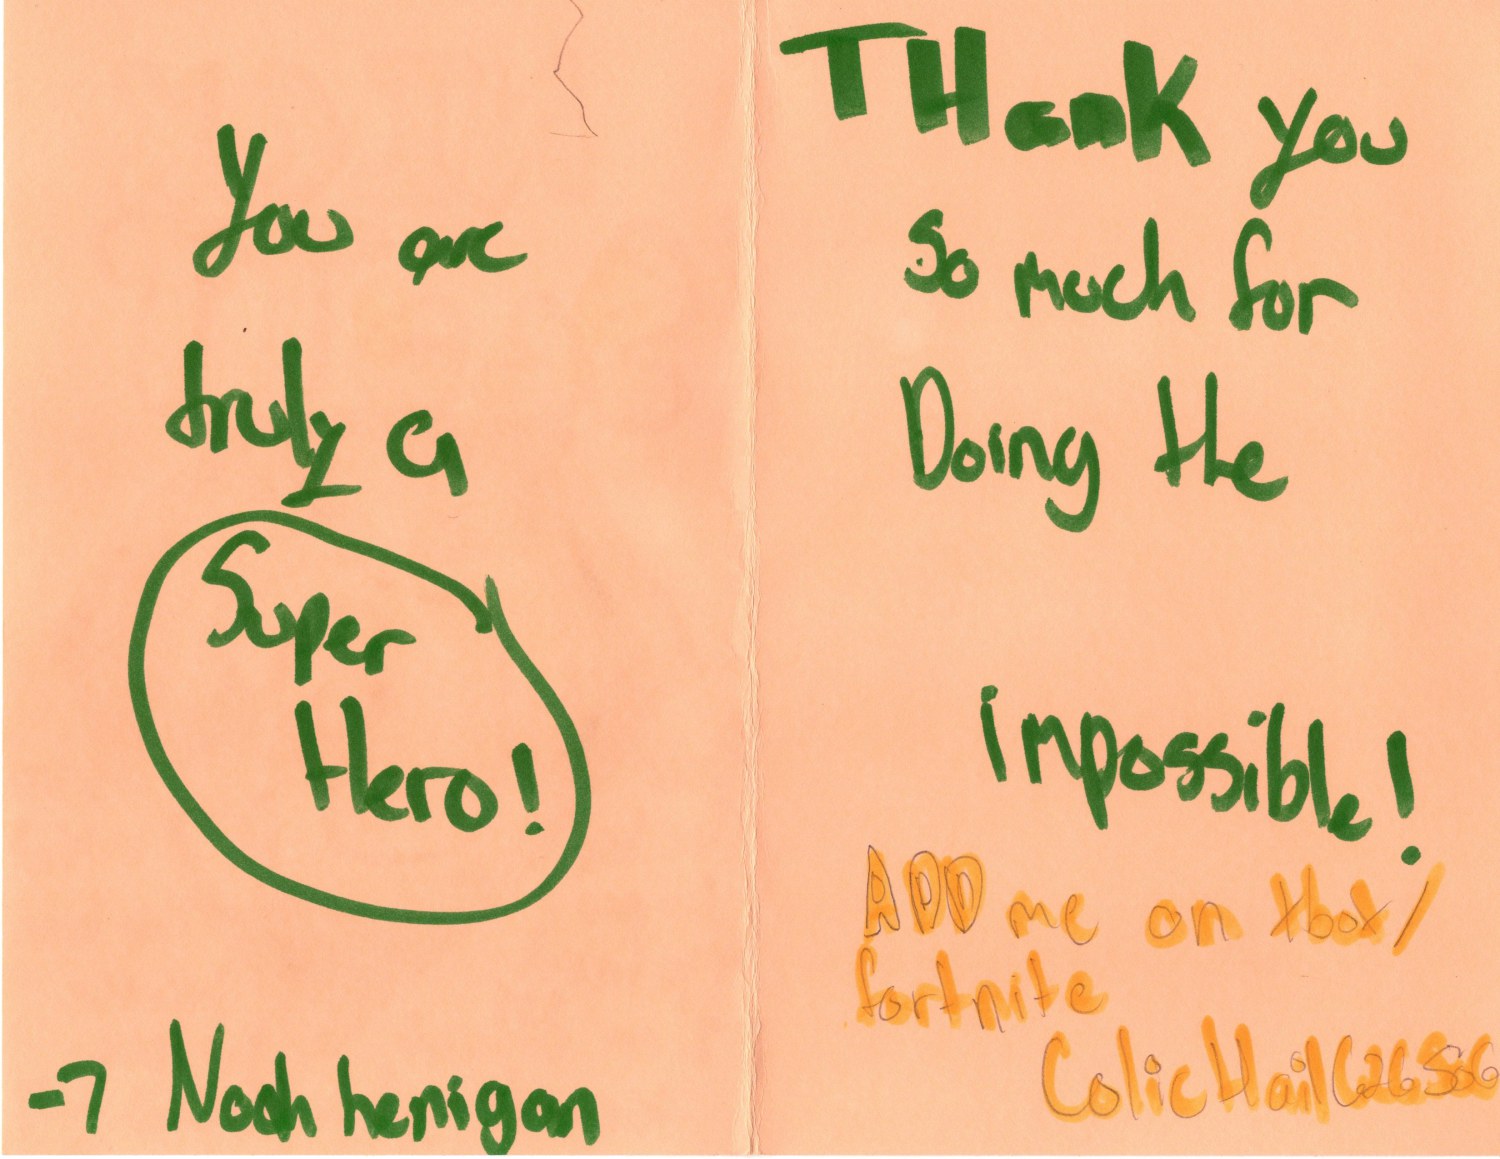 You are
truly a
Super
Hero!
-7 Noah henigan
THank you
So much for
Doing the
impossible!
ADD me on Xbox/
fortnite